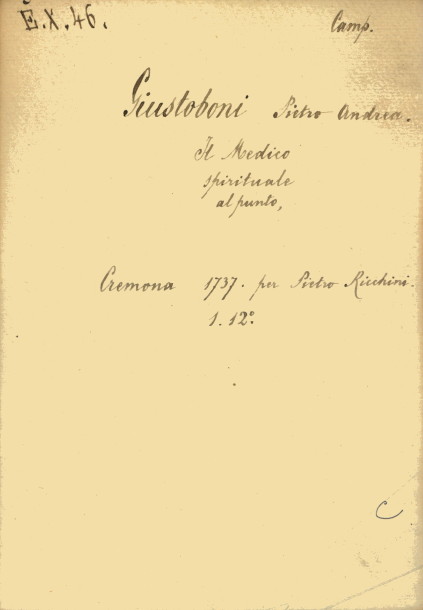 E.X.46.
Camp.
Giustoboni Pietro Andrea.
Il Medico
spirituale
al punto,
Cremona 1737. per Pietro Ricchini.
1. 12º.
C